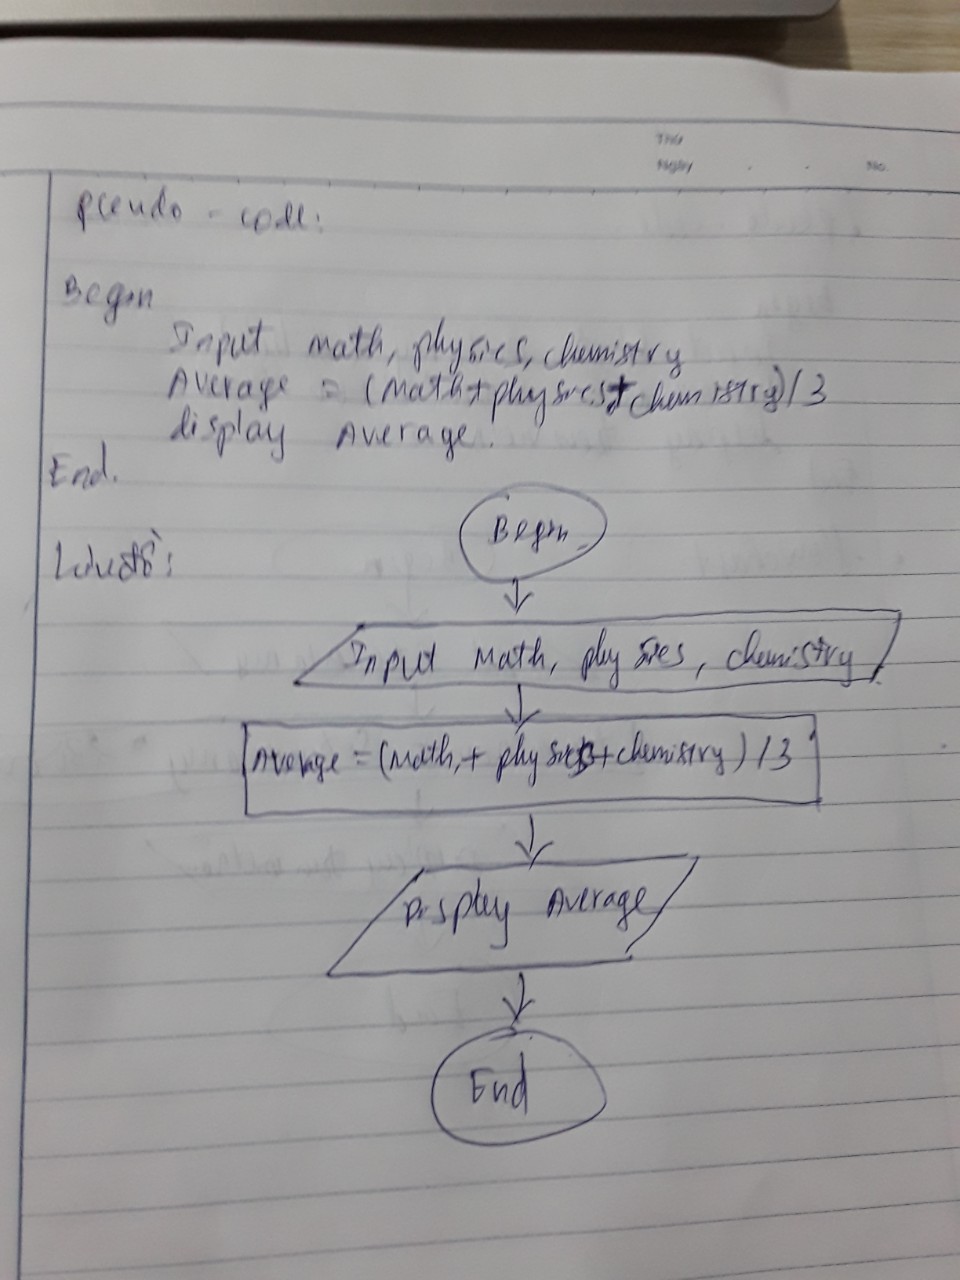 THỨ
NGÀY . . NO.
pseudo - code:
Begin
Input math, physics, chemistry
Average = (Math+physics+chemistry)/3
display Average.
End.
Begin
Input Math, physics, chemistry
Average = (Math,+ physics+chemistry)/3
Display Average
End